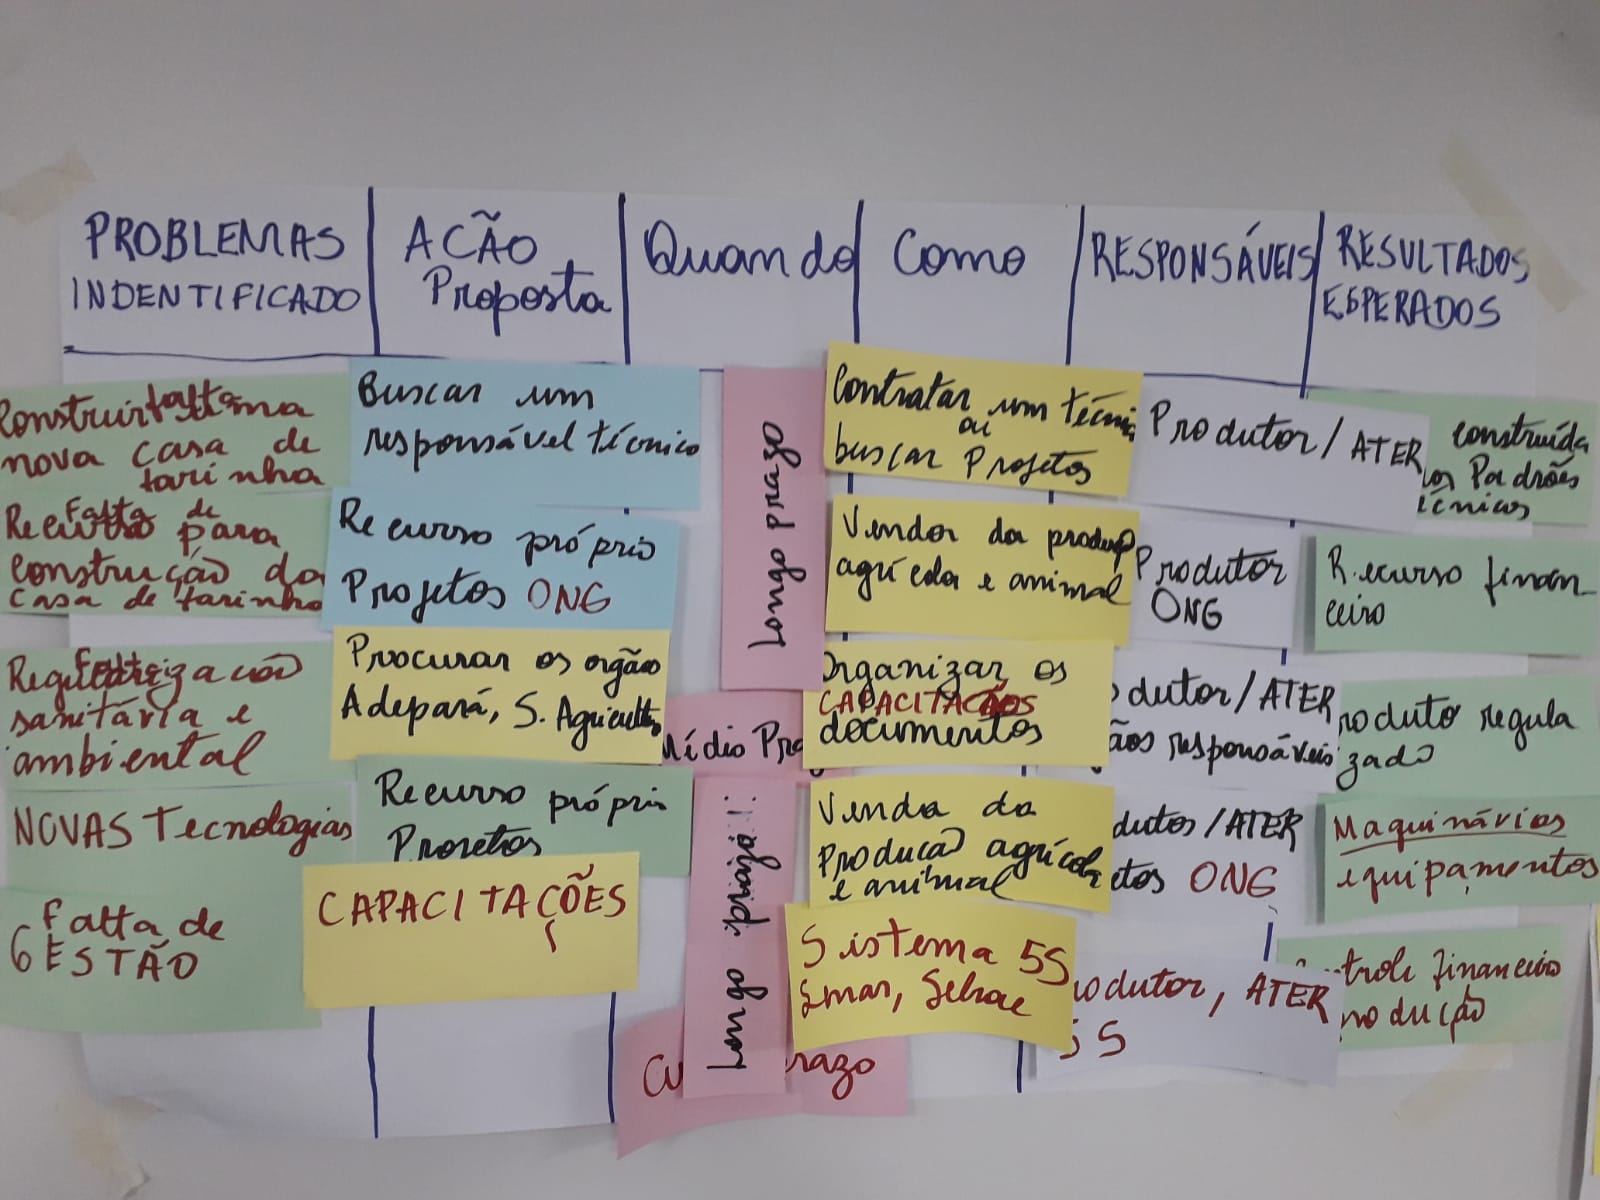 PROBLEMAS
INDENTIFICADO
ACÃO
Proposta
Quando
Como
RESPONSÁVEIS
RESULTADOS
ESPERADOS
Construir falta uma
nova casa de
farinha
Buscar um
responsável técnico
Longo prazo
Contratar um técni
ou
buscar Projetos
Produtor/ATER
construída
os Padrões
écnicos
Falta de
Recurso para
construção da
casa de farinha
Recurso próprio
Projetos ONG
Vendor da produç
agrícola e animal
Produtor
ONG
Recurso finan-
ceiro
Falta
sanitária e
ambiental
Procurar os orgãos
Adepará, S. Agricultu
Mídio Pra
Organizar os
CAPACITAÇÕES
documentos
odutor/ATER
ãos responsáveis
roduto regula
izado
NOVAS Tecnologias
Recurso próprio
Projetos
Longo
Venda da
Producaõ agrícola
e animal
dutos/ATER
etos ONG
Maquinários
equipamentos
Falta de
GESTÃO
CAPACITAÇÕES
Cu
razo
Sistema 5S
Emar, Sebrae
odutor, ATER
5S
ntrole financeiro
rodução